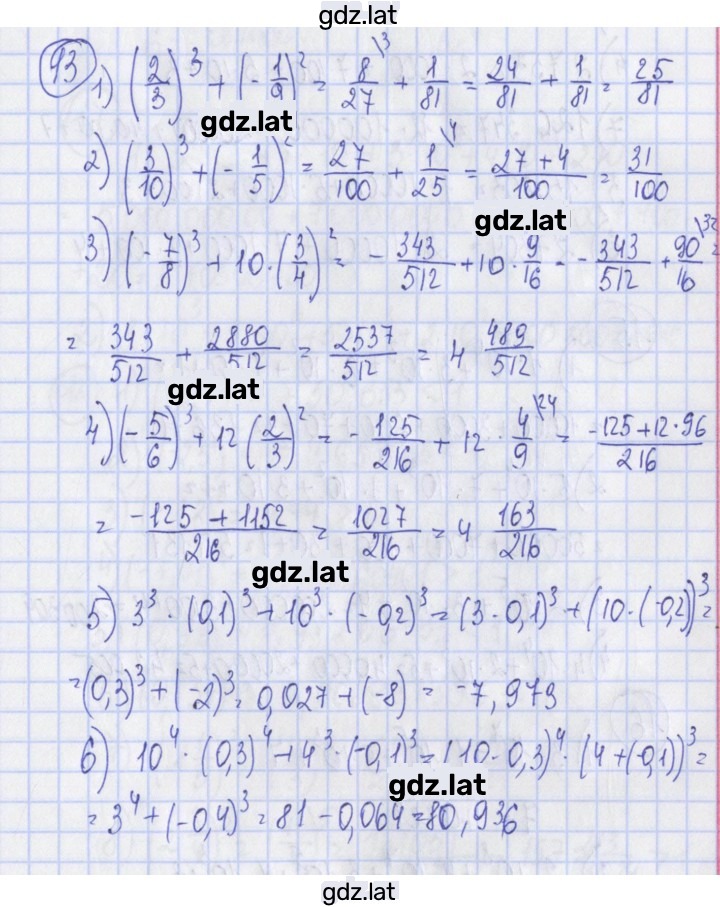 gdz.lat
93
1) (2/3)^3 + (-1/9)^2 = 8/27 \3 + 1/81 = 24/81 + 1/81 = 25/81
gdz.lat
2) (3/10)^3 + (-1/5)^2 = 27/100 + 1/25 \4 = (27 + 4)/100 = 31/100
gdz.lat
3) (-7/8)^3 + 10 · (3/4)^2 = - 343/512 + 10 · 9/16 = - 343/512 + 90/16 \32 =
= 343/512 + 2880/512 = 2537/512 = 4 489/512
gdz.lat
4) (-5/6)^3 + 12 (2/3)^2 = - 125/216 + 12 · 4/9 \24 = (-125 + 12 · 96)/216
= (-125 + 1152)/216 = 1027/216 = 4 163/216
gdz.lat
5) 3^3 · (0,1)^3 + 10^3 · (-0,2)^3 = (3 · 0,1)^3 + (10 · (-0,2))^3 =
= (0,3)^3 + (-2)^3 = 0,027 + (-8) = -7,973
6) 10^4 · (0,3)^4 + 4^3 · (-0,1)^3 = (10 · 0,3)^4 · (4 + (-0,1))^3 =
gdz.lat
= 3^4 + (-0,4)^3 = 81 - 0,064 = 80,936
gdz.lat